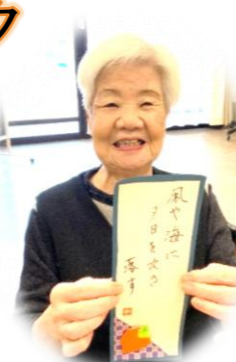 凩や海に
夕日を吹き
落す